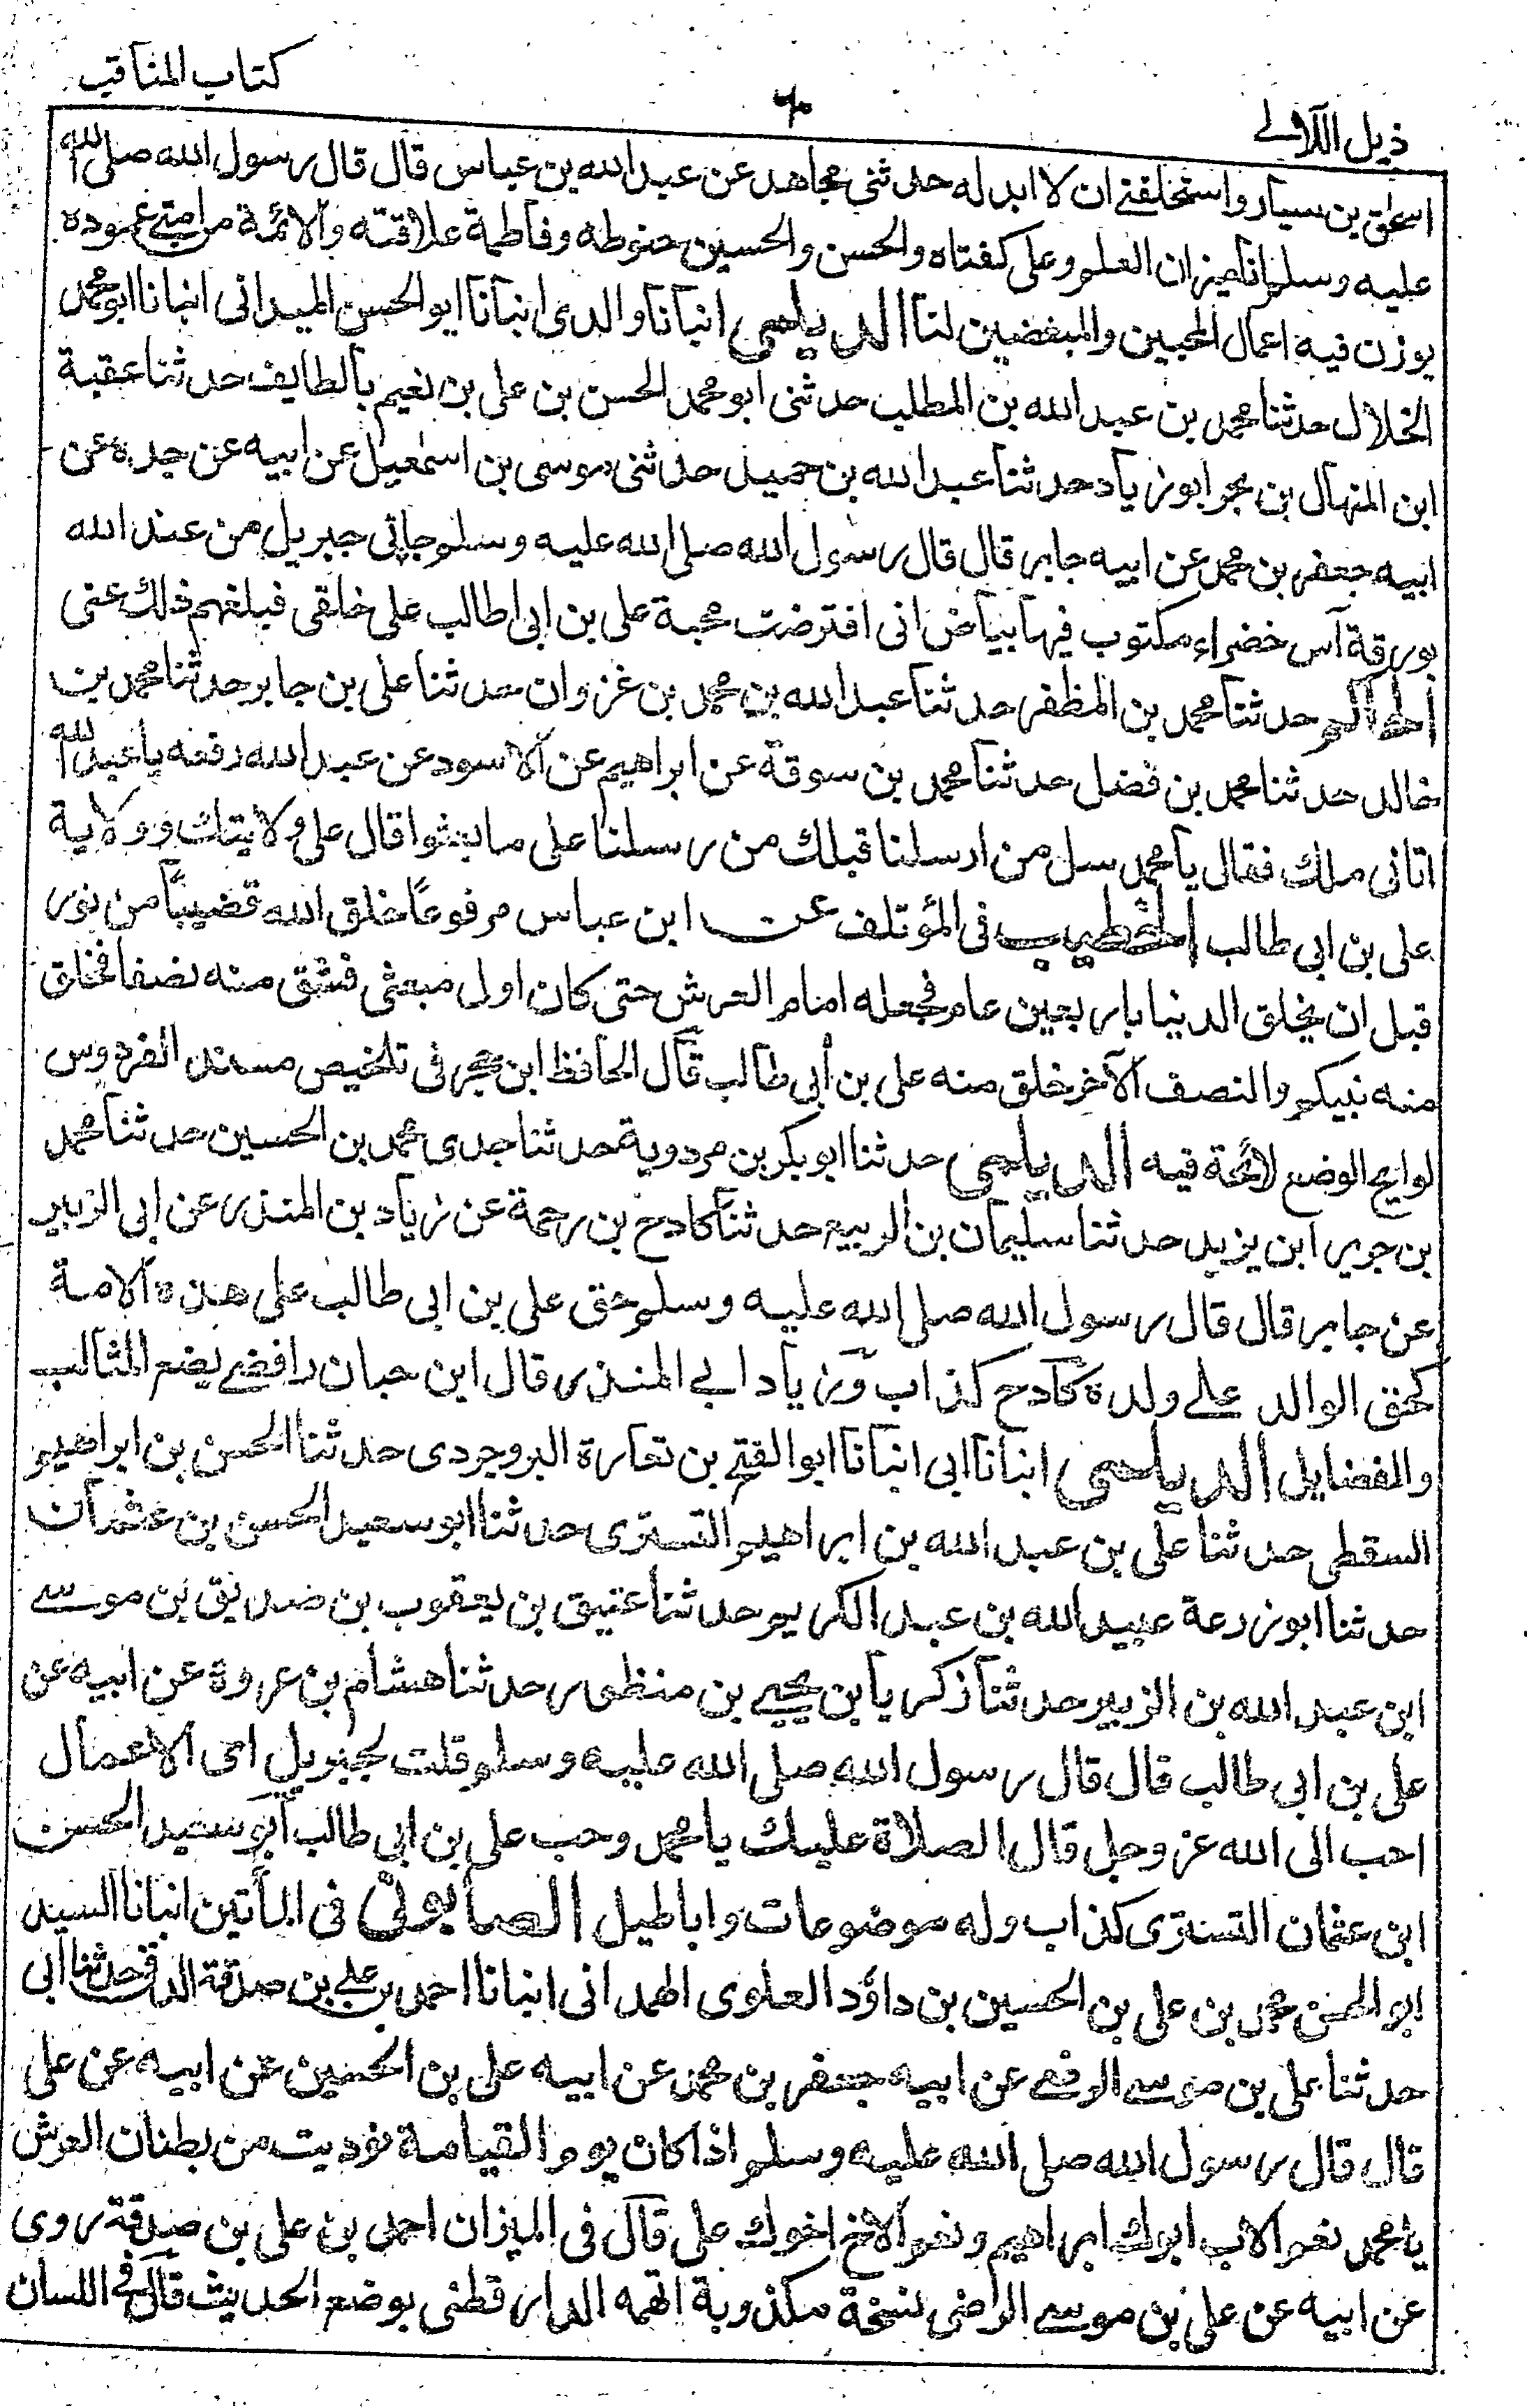 كتاب المناقب
٦٠
ذيل اللآلي
اسحق بن سيار واستحلفني ان لا ابدله حدثني مجاهد عن عبد الله بن عباس قال قال رسول الله صلى الله
عليه وسلم انا ميزان العلم وعلى كفتاه والحسن والحسين خيوطه وفاطمة علاقته والائمة من امتي عموده
يوزن فيه اعمال المحبين والمبغضين لنا الديلمي انبانا والدي انبانا ابو الحسن الميداني انبانا ابو محمد
الخلال حدثنا محمد بن عبد الله بن المطلب حدثني ابو محمد الحسن بن علي بن نعيم بالطايف حدثنا عقبة
ابن المنهال بن بحر ابو زياد حدثنا عبد الله بن حميد حدثني موسى بن اسمعيل عن ابيه عن جده عن
ابيه جعفر بن محمد عن ابيه جابر قال قال رسول الله صلى الله عليه وسلم جاني جبريل من عند الله
بورقة آس خضراء مكتوب فيها بياض اني افترضت محبة علي بن ابي طالب على خلقي فبلغهم ذلك عني
الحاكم حدثنا محمد بن المظفر حدثنا عبد الله بن محمد بن غزوان حدثنا علي بن جابر حدثنا محمد بن
خالد حدثنا محمد بن فضل حدثنا محمد بن سوقة عن ابراهيم عن الاسود عن عبد الله رفعه يا عبد الله
اتاني ملك فقال يا محمد سل من ارسلنا قبلك من رسلنا على ما بعثوا قال على ولايتك وولاية
علي بن ابي طالب الخطيب في المؤتلف عن ابن عباس مرفوعاً خلق الله قضيباً من نور
قبل ان يخلق الدنيا باربعين عام فجعله امام العرش حتى كان اول مبعثي فشق منه نصفا فخلق
منه نبيكم والنصف الآخر خلق منه علي بن أبي طالب قال الحافظ ابن حجر في تلخيص مسند الفردوس
لوايح الوضع لائحة فيه الديلمي حدثنا ابو بكر بن مردوية حدثنا جدي محمد بن الحسين حدثنا محمد
بن جرير ابن يزيد حدثنا سليمان بن الربيع حدثنا كادح بن رحمة عن زياد بن المنذر عن ابي الزبير
عن جابر قال قال رسول الله صلى الله عليه وسلم حق علي بن ابي طالب على هذه الامة
كحق الوالد على ولده كادح كذاب وزياد ابي المنذر قال ابن حبان رافضي يضع المثالب
والفضايل الديلمي انبانا ابي انبانا ابو الفتح بن تعارة البروجردي حدثنا الحسن بن ابراهيم
السقطي حدثنا علي بن عبد الله بن ابراهيم التستري حدثنا ابو سعيد الحسن بن عثمان
حدثنا ابو زرعة عبيد الله بن عبد الكريم حدثنا عتيق بن يعقوب بن صديق بن موسى
ابن عبد الله بن الزبير حدثنا زكريا بن يحيى بن منظور حدثنا هشام بن عروة عن ابيه عن
علي بن ابي طالب قال قال رسول الله صلى الله عليه وسلم قلت لجبريل اي الاعمال
احب الى الله عز وجل قال الصلاة عليك يا محمد وحب علي بن ابي طالب أبو سعيد الحسن
ابن عثمان التستري كذاب وله موضوعات واباطيل الصابوني في المأتين انبانا السيد
ابو الحسن محمد بن علي بن الحسين بن داؤد العلوي الهمداني انبانا احمد بن علي بن صدقة الدقي حدثنا ابي
حدثنا علي بن موسى الرضي عن ابيه جعفر بن محمد عن ابيه علي بن الحسين عن ابيه عن علي
قال قال رسول الله صلى الله عليه وسلم اذا كان يوم القيامة نوديت من بطنان العرش
يا محمد نعم الاب ابوك ابراهيم ونعم الاخ اخوك علي قال في الميزان احمد بن علي بن صدقة روى
عن ابيه عن علي بن موسى الراضي نسخة مكذوبة اتهمه الدارقطني بوضع الحديث قال في اللسان